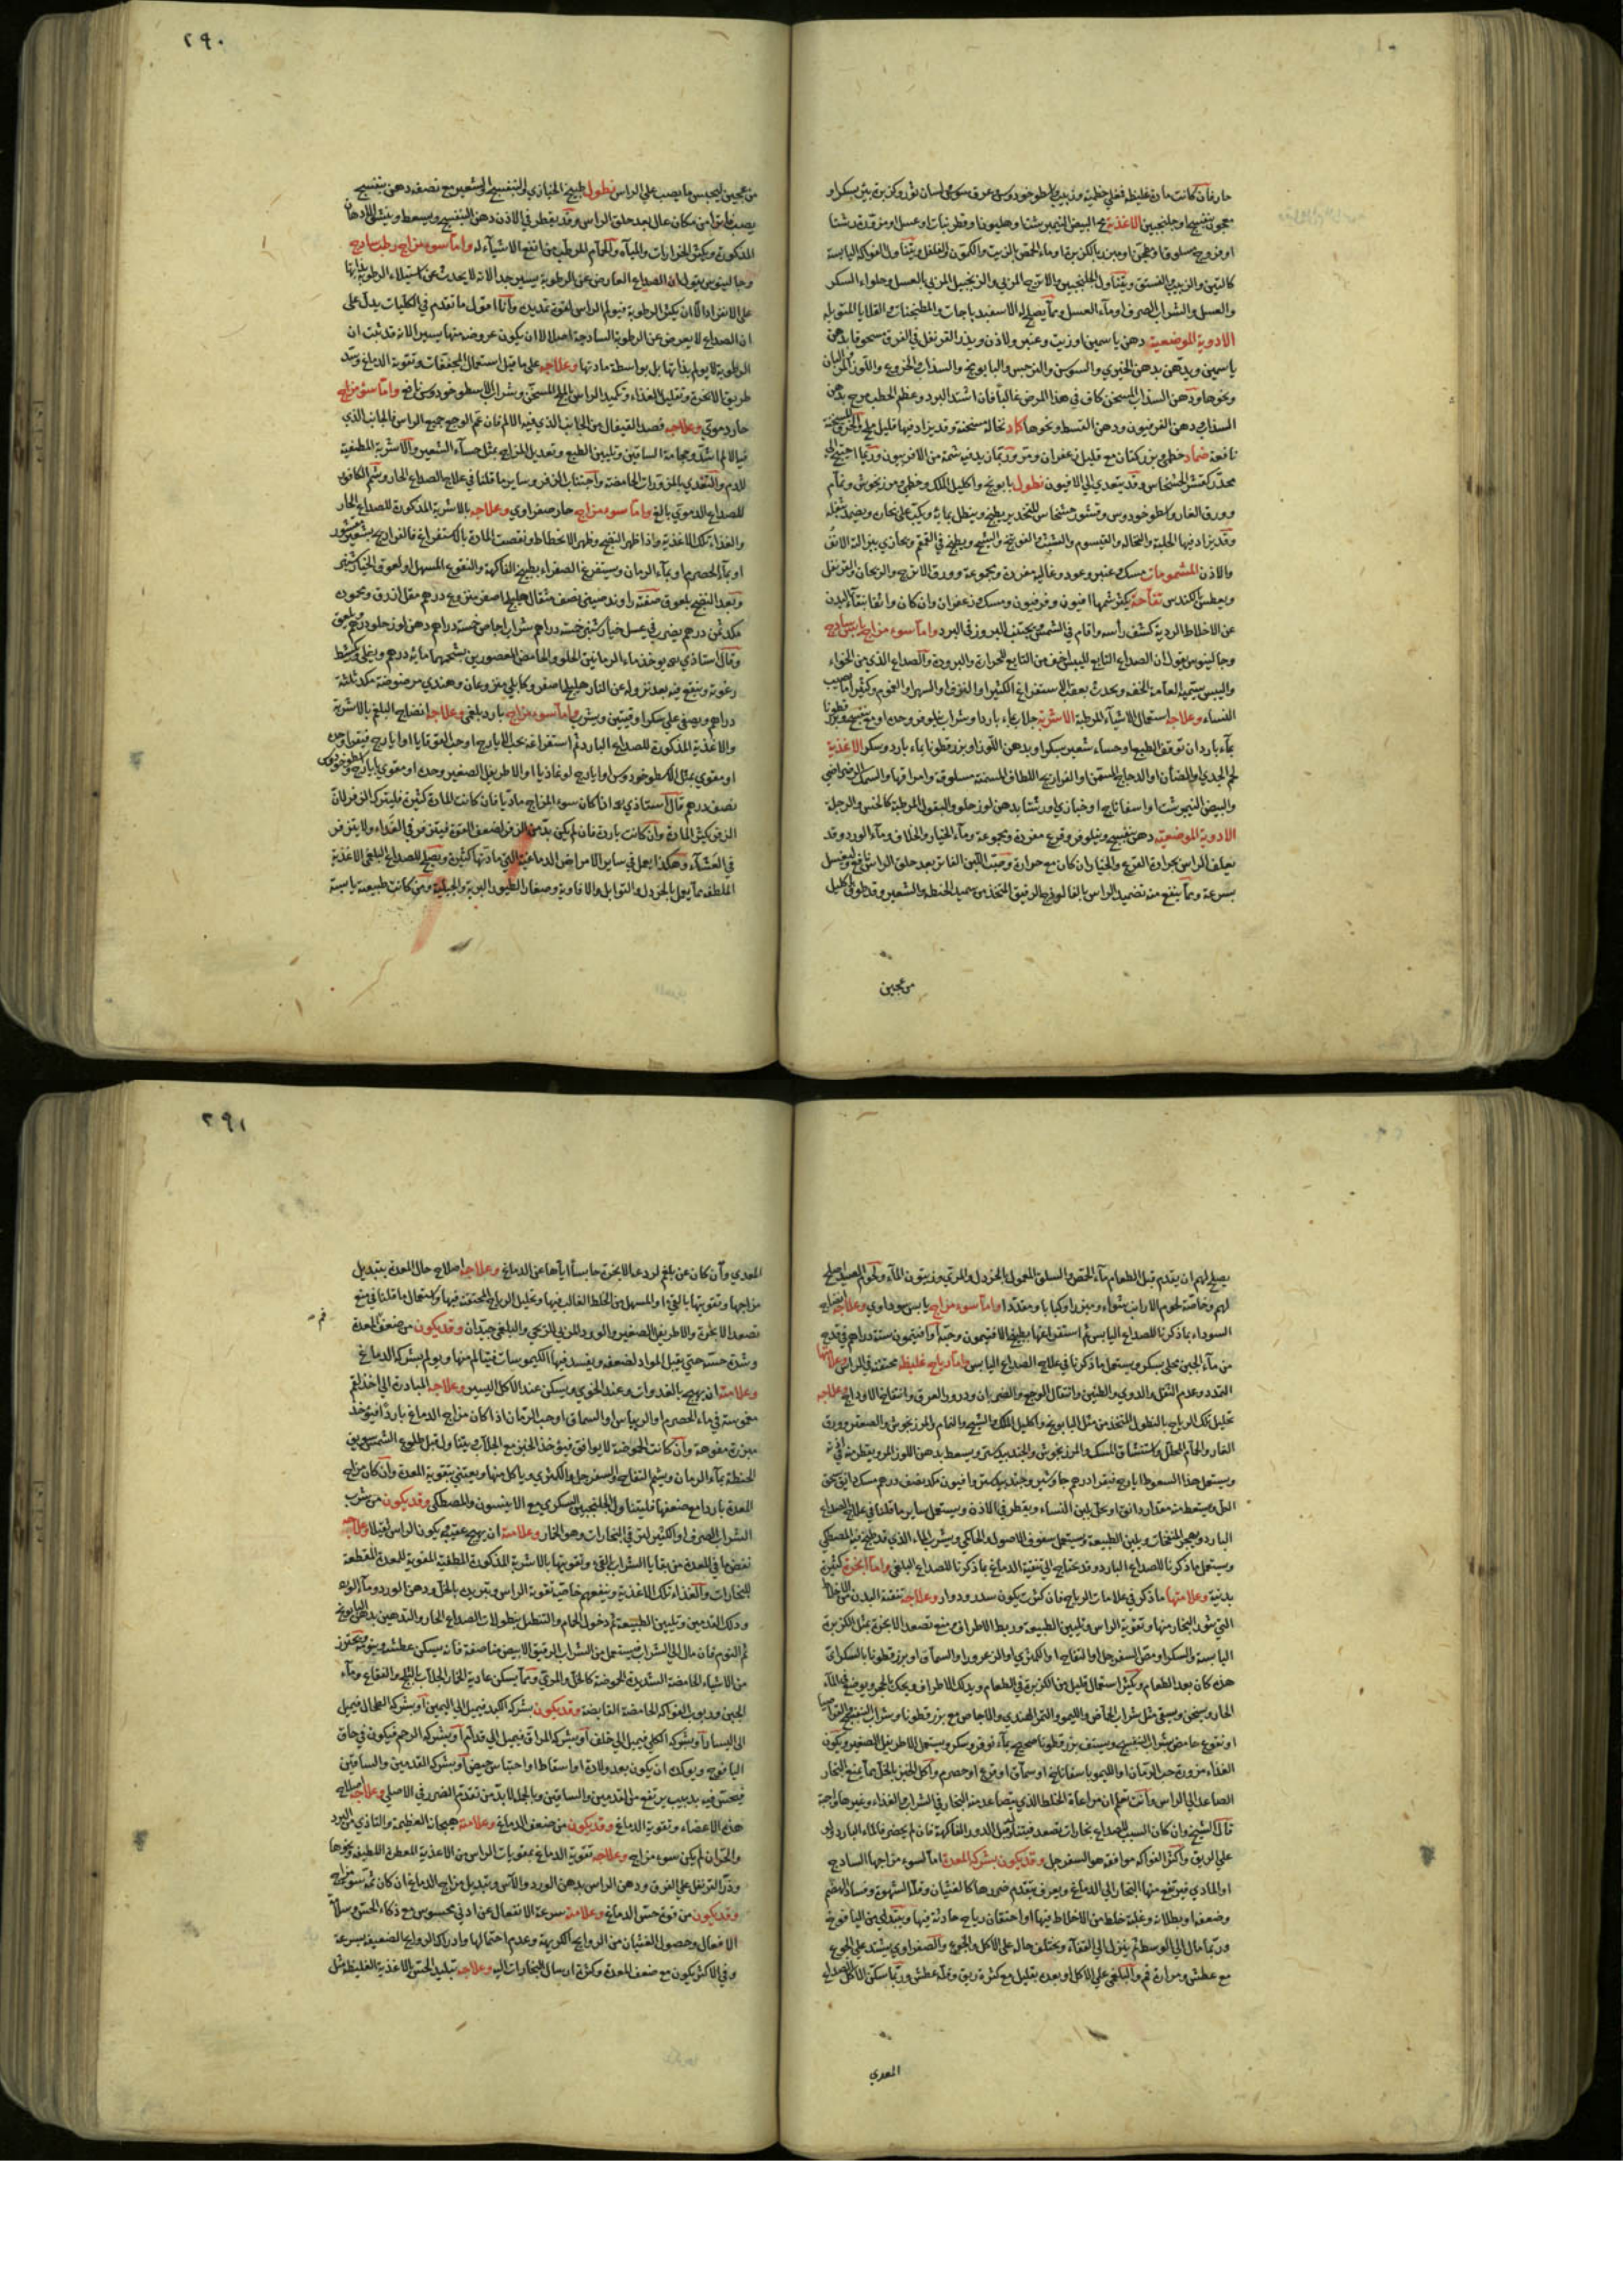 ٢٩٠
حار فان كانت مادة غليظة فغلي خطمية وزبيب واسطوخودوس وعرق سوس ولسان ثور وكزبرة بئر بسكر او
معجون بنفسج او جلنجبين الاغذية مح البيض النيمبرشت او هليونا وقطر نبات او عسل او مزورة رشتا
او فروج مسلوقا ومطجنا او مبزرا بالكزبرة او ماء الحمص بالزيت والكمون والفلفل ويتناول الفواكه اليابسة
كالتين والزبيب والفستق ويتناول الجلنجبين والاترج المربي والزنجبيل المربي بالعسل وحلواء السكر
والعسل والشراب الصرف او ماء العسل ومما يصلح له الاسفيدباجات والمطجنات والقلايا المتوبلة
الادوية الموضعية دهن ياسمين او زيت وعنبر ولاذن ويذر القرنفل في الفرق مسحوقا بدهن
ياسمين ويدهن بدهن الخيري والسوسن والنرجس والبابونج والسذاب والخروع واللوز المر والبان
ونحوها ودهن السذاب المسخن كاف في هذا المرض غالبا فان اشتد البرد وعظم الخطب مرخ بدهن
السذاب دهن الفرفيون ودهن القسط ونحوها كماد نخالة مسخنة وقد يزاد فيها قليل ملح والخرق المسخنة
نافعة ضماد خطمي وبزر كتان مع قليل زعفران ومر وربما زيد فيه شمة من الافربيون وربما احتيج الى
مخدر كقشر الخشخاش وقد يتعدي الي الافيون نطول بابونج واكليل الملك وخطمي ومرزنجوش ونمام
وورق الغار واسطوخودوس وقشور خشخاش للتخدير يطبخ وينطل بمائه ويكب على بخاره ويضمد بثفله
وقد يزاد فيها الحلبة والنخالة والقيسوم والشبث والفوتنج والشيح ويطبخ في القمقم ويحاذي ببزالته الانف
والاذن المشمومات مسك وعنبر وعود وغالية مفردة ومجموعة وورق الاترج والريحان والقرنفل
ويعطس بالكندس تفاحة يكثر شمها افيون وفرفيون ومسك وزعفران وان كان واثقا بنقاء البدن
عن الاخلاط الردية كشف رأسه واقام في الشمس ويجتنب البروز في البرد واما سوء مزاج يابس ساذج
وجالينوس يقول ان الصداع التابع لليبس اخف من التابع للحرارة والبرودة والصداع الذي من الخواء
واليبس يسميه العامة الخفة ويحدث بعقب الاستفراغ الكثير او النزف او السهر او الغموم وكثيرا ما يصيب
النساء وعلاجه استعمال الاشياء المرطبة الاشربة جلاب بماء باردا وشراب نيلوفر وحده او مع بنفسج وبزر قطونا
بماء بارد ان توقف الطبع او حساء شعير بسكر او بدهن اللوز او بزر قطونا بماء بارد وسكر الاغذية
لحم الجدي او الضأن او الدجاج المسمن او الفراريج اللطاف المسمنة مسلوقة وامراقها والسمك الرضراضي
والبيض النيمبرشت او اسفاناج او خبازي او رشتا بدهن لوز حلو والبقول المرطبة كالخس والرجلة
الادوية الموضعية دهن بنفسج ونيلوفر وقرع مفردة ومجموعة وماء الخيار والخلاف وماء الورد وقد
يغلف الراس بجرادة القرع والخيار ان كان مع حرارة وصب اللبن الفاتر بعد حلق الراس نافع ليغسل
بسرعة ومما ينتفع منه تضميد الراس بالفالوذج الرقيق المتخذ من سميد الحنطة والشعير وقد طوق اكليل
من عجين
من عجين ليحبس ما يصب على الراس نطول طبيخ الخبازي والبنفسج والشعير مع نصفه دهن بنفسج
يصب فاترا من مكان عال بعد حلق الراس وقد يقطر في الاذن دهن البنفسج ويسعط وينشق الادهان
المذكورة ويكثر الخرارات والمياه والحمام المرطب من انفع الاشياء له واما سوء مزاج رطب ساذج
وجالينوس يقول ان الصداع العارض عن الرطوبة يسير جدا لانه لا يحدث عن استيلاء الرطوبة بذاتها
على الانفراد الا ان يكثر الرطوبة فيولم الراس لقوة تمديدها وانا اقول ما تقدم في الكليات يدل على
ان الصداع لا يعرض عن الرطوبة الساذجة اصلا لا ان يكون عروضه منها يسيرا لانه قد ثبت ان
الرطوبة لا يولم بذاتها بل بواسطة مادتها وعلاجه على ما قيل استعمال المجففات وتقوية الدماغ وسد
طريق الابخرة وتقليل الغذاء وتكميد الراس بالملح المسخن وشراب الاسطوخودوس نافع واما سوء مزاج
حار دموي وعلاجه فصد القيفال من الجانب الذي فيه الالم فان عم الوجع جميع الراس فالجانب الذي
فيه الالم اشد وحجامة الساقين وتليين الطبع وتعديل المزاج بمثل حساء الشعير والاشربة المطفية
للدم والتغذي بالمزورات الحامضة واجتناب الزفر وساير ما قلنا في علاج الصداع الحار وشم الكافور
للصداع الدموي بالغ واما سوء مزاج حار صفراوي وعلاجه بالاشربة المذكورة للصداع الحار
والغذاء تلك الاغذية واذا ظهر النضج وظهر الانحطاط ونقصت المادة بالاستفراغ فالفراريج بشعير مقشور
او بماء الحصرم او بماء الرمان ويستفرغ الصفراء بطبيخ الفاكهة والنقوع المسهل او لعوق الخيارشنبر
وبعد النضج بلعوق صفته راوند صيني نصف مثقال هليلج اصفر منزوع درهم مقل ازرق ومحمودة
مكد ثمن درهم يضرب في عسل خيارشنبر خمسة دراهم شراب اجاص خمسة دراهم دهن لوز حلو درهم يلعق
وقال استاذي يوخذ ماء الرمانين الحلو والحامض المعصورين بشحمهما ماية درهم ويغلى ويكشط
رغوته وينقع فيه بعد نزوله عن النار هليلج اصفر وكابلي منزوعان وهندي مرضوضة مكد ثلثة
دراهم ويصفى على سكر اوقيتين ويشرب واما سوء مزاج بارد بلغمي وعلاجه انضاج البلغم بالاشربة
والاغذية المذكورة للصداع البارد ثم استفراغه بحب الايارج او حب القوقايا او ايارج فيقرا وحده
او مقوي بمثل الاسطوخودوس او ايارج لوغاذيا او الاطريفل الصغير وحده او مقوي بايارج واسطوخودوس
نصف درهم قال استاذي اذا كان سوء المزاج ماديا فان كانت المادة كثيرة فليترك الزفر لان
الزفر يكثر المادة وان كانت باردة فان لم يكن بد من الزفر لضعف القوة فيتزفر في الغداء ولا يتزفر
في العشاء وهكذا يعمل في ساير الامراض الدماغية التي مادتها كثيرة ويصلح للصداع البلغمي الاغذية
الملطفة مما يعمل بالخردل والتوابل والافاوية وصغار الطيور البرية والجبلية ومن كانت طبيعته يابسة
٢٩١
يصلح لهم ان يقدم قبل الطعام ماء الحمص والسلق المعمول بالخردل والمري وزيتون الماء ولحوم الصيد اصلح
لهم وخاصة لحوم الارانب شواء ومبزرا وكبابا ومقددا واما سوء مزاج يابس سوداوي وعلاجه انضاج
السوداء بما ذكرنا للصداع اليابس ثم استفراغها بطبيخ الافتيمون وحبه او افتيمون ستة دراهم في قدح
من ماء الجبن محلى بسكر ويستعمل ما ذكرنا في علاج الصداع اليابس واما رياح غليظة محتقنة في الراس وعلامتها
التمدد وعدم الثقل والدوي والطنين وانتقال الوجع والضربان ودرور العروق وانتفاخ الاوداج وعلاجه
تحليل تلك الرياح بالنطول المتخذ من مثل البابونج واكليل الملك والشيح والنمام والمرزنجوش والصعتر وورق
الغار والحمام المحلل واستنشاق المسك والمرزنجوش والجندبيدستر ويسعط بدهن اللوز المر ويقطر منه في اذنه
ويستعمل هذا السعوط ايارج فيقرا درهم جاوشير وجندبيدستر وافيون مكد نصف درهم مسك دانق يسحق
الكل ويسعط منه مقدار دانق او يحل بلبن النساء ويقطر في الاذن ويستعمل ساير ما قلنا في علاج الصداع
البارد ويهجر المنفخات ويلين الطبيعة ويستعمل سفوف الاصول والحاكي ويشرب الماء الذي قد طبخ فيه المصطكي
ويستعمل ما ذكرنا للصداع البارد وقد يحتاج الى تنقية الدماغ بما ذكرنا للصداع البلغمي واما ابخرة كثيرة
بدنية وعلامتها ما ذكر في علامات الرياح فان كثرت يكون سدر ودوار وعلاجه تنقية البدن من الاخلاط
التي يتولد البخار منها وتقوية الراس وتليين الطبيعة وربط الاطراف ومنع تصعد الابخرة بمثل الكزبرة
اليابسة والسكر او مص السفرجل او التفاح او الكمثري او الزعرور او السماق او بزر قطونا بالسكر اي
هذه كان بعد الطعام ويكثر استعمال قليل من الكزبرة في الطعام ويدلك الاطراف ويحك بالحجر ويوضع في الماء
الحار ويسخن ويسقى مثل شراب الحماض والليمو والتمر الهندي والاجاص مع بزر قطونا وشراب البنفسج
او نقوع حامض شراب البنفسج ويستف بزر قطونا صحيح بماء نوفر وسكر ويستعمل الاطريفل الصغير ويكون
الغذاء مزورة حب الرمان او الليمو باسفاناخ او سماق او قرع او حصرم واكل الخبز بالخل مما يمنع البخار
الصاعد الى الراس وانت تعلم ان مراعاة الخلط الذي يتصاعد منه البخار في الشراب والغذاء وغيرها واجبة
قال الشيخ وان كان السبب للصداع بخارات تصعد فيتناول قبل الدور الفاكهة فان لم يحضر فالماء البارد ولو
على الريق واكثر الفواكه موافقة هو السفرجل وقد يكون بشركة المعدة اما لسوء مزاجها الساذج
او المادي فيرتفع منها البخار الى الدماغ ويعرف بتقدم ضررها كالغثيان وقلة الشهوة وفساد الهضم
وضعفه او بطلانه وغلبة خلط من الاخلاط فيها او احتقان رياح حادثة فيها ويبتدي من اليافوخ
وربما مال الى الوسط ثم ينزل الى القفا ويختلف حاله على الاكل والجوع والصفراوي يشتد على الجوع
مع عطش ومرارة فم والبلغمي على الاكل او بعده بقليل مع كثرة ريق وقلة عطش وربما سكن الاكل الصداع
المعدي
المعدي وان كان عن بلغم لردعه الابخرة حابسا اياها عن الدماغ وعلاجه اصلاح حال المعدة بتبديل
مزاجها وتقويتها بالقيء او المسهل من الخلط الغالب فيها وتحليل الرياح المحتقنة فيها واستعمال ما قلنا في منع
تصعد الابخرة والاطريفل الصغير والورد المربى للريحي والبلغمي جيدان وقد يكون من ضعف المعدة
وشدة حسه حتى يقبل المواد لضعفه ويفسد فيها الكيموسات فيتالم منها ويولم بشركة الدماغ
وعلامته انه يهيج بالغدوات وعند الخوي ويسكن عند الاكل اليسير وعلاجه المبادرة الى اخذ لقم
مغموسة في ماء الحصرم او الريباس او السماق او حب الرمان اذا كان مزاج الدماغ باردا فيوخذ
مبزرة مفوهة وان كانت الحموضة لا يوافق فيؤخذ الخبز مع الجلاب ويتناول قبل طلوع الشمس سويق
الحنطة بماء الرمان ويشم التفاح والسفرجل والكمثري وياكل منها ويعتني بتقوية المعدة وان كان مزاج
المعدة باردا مع ضعفها فليتناول الجلنجبين السكري مع الانيسون والمصطكي وقد يكون من شرب
الشراب الصرف او الكثير لترقي البخارات وهو الخمار وعلامته ان يهيج عقيبه ويكون الراس ثقيلا وعلاجه
نفض ما في المعدة من بقايا الشراب بالقيء وتقويتها بالاشربة المذكورة المطفية المقوية للمعدة المقطعة
للبخارات والغذاء تلك الاغذية وينفعهم خاصة تقوية الراس وتبريده بالخل ودهن الورد وماء الورد
ودلك القدمين وتليين الطبيعة ثم دخول الحمام والتنطيل بنطولات الصداع الحار والتدهين بدهن البابونج
ثم النوم فان مال الى الشراب فيستعمل من الشراب الرقيق الابيض مناصفة فانه يسكن عطشه وينومه ويحترز
من الاشياء الحامضة الشديدة الحموضة كالخل والمري ومما يسكن عادية الخمار الجلاب بالثلج والفقاع وماء
الجبن وربوب الفواكه الحامضة القابضة وقد يكون بشركة الكبد فيميل الى اليمين او بشركة الطحال فيميل
الى اليسار او بشركة الكلى فيميل الى خلف او بشركة المراق فيميل الى قدام او بشركة الرحم فيكون في حاق
اليافوخ ويوكده ان يكون بعد ولادة او اسقاط او احتباس حيض او بشركة القدمين والساقين
فيحس فيه بدبيب يرتفع من القدمين والساقين وبالجملة لا بد من تقدم الضرر في الاصلي وعلاجه اصلاح
هذه الاعضاء وتقوية الدماغ وقد يكون من ضعف الدماغ وعلامته هيجانه العظيمة والتاذي من البرد
والحر ان لم يكن سوء مزاج وعلاجه تقوية الدماغ بمقويات الراس من الاغذية العطرة اللطيفة ونحوها
وذر القرنفل على الفرق ودهن الراس بدهن الورد والآس وتبديل مزاج الدماغ ان كان ثمة سوء مزاج
وقد يكون من قوة حس الدماغ وعلامته سرعة الانفعال عن ادنى محسوس مع ذكاء الحس وسلامة
الافعال وحصول الغثيان من الروايح الكريهة وعدم احتمالها وادراك الروايح الضعيفة بسرعة
وفي الاكثر يكون مع ضعف المعدة وكثرة ارسال البخارات اليه وعلاجه تبليد الحس بالاغذية الغليظة مثل